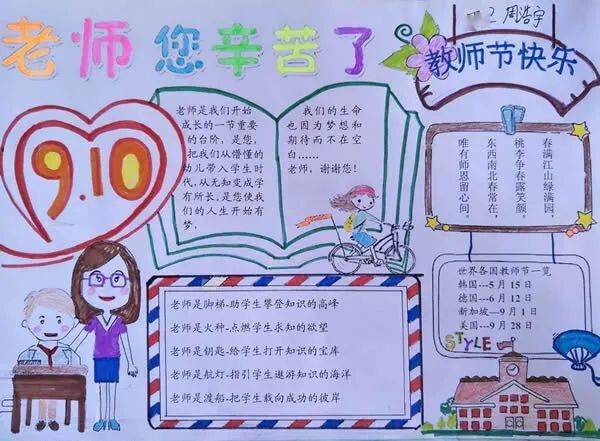 二周浩宇
老师您辛苦了
教师节快乐
9.10
老师是我们开始
成长的一节重要
的台阶,是您,
把我们从懵懂的
幼儿带入学生时
代,从无知变成学
有所长,是您使我
们的人生开始有
梦,
我们的生命
也因为梦想和
期待而不在空
白……
老师,谢谢您!
春满江山绿满园,
桃李争春露笑颜。
东西南北春常在,
唯有师恩留心间。
老师是脚梯-助学生攀登知识的高峰
老师是火种-点燃学生求知的欲望
老师是钥匙-给学生打开知识的宝库
老师是航灯-指引学生遨游知识的海洋
老师是渡船-把学生载向成功的彼岸
世界各国教师节一览
韩国---5月 15日
德国---6月 12日
新加坡---9月1日
美国---9月 28日
STYLE